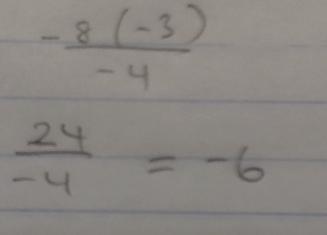 -8(-3)
-4
24
-4 = -6